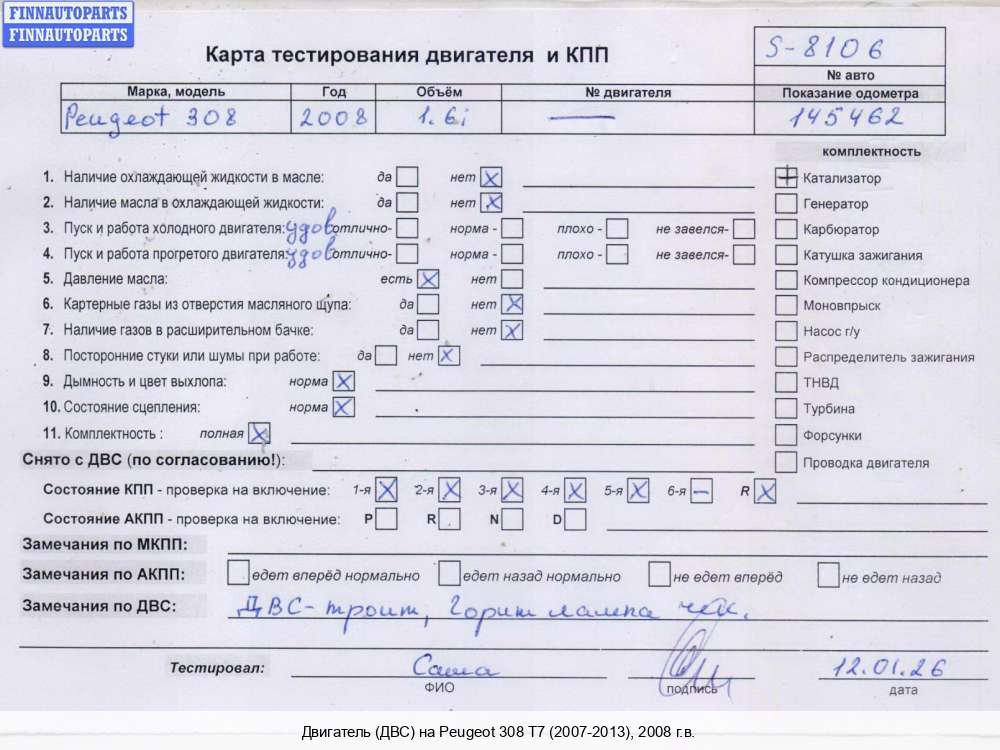 FINNAUTOPARTS
FINNAUTOPARTS
Карта тестирования двигателя и КПП
S-8106
№ авто
Марка, модель Год Объём № двигателя Показание одометра
Peugeot 308 2008 1.6i — 145462
комплектность
1. Наличие охлаждающей жидкости в масле: да нет X
Катализатор
2. Наличие масла в охлаждающей жидкости: да нет X
Генератор
3. Пуск и работа холодного двигателя: удов отлично- норма - плохо - не завелся-
Карбюратор
4. Пуск и работа прогретого двигателя: удов отлично- норма - плохо - не завелся-
Катушка зажигания
5. Давление масла: есть X нет
Компрессор кондиционера
6. Картерные газы из отверстия масляного щупа: да нет X
Моновпрыск
7. Наличие газов в расширительном бачке: да нет X
Насос г/у
8. Посторонние стуки или шумы при работе: да нет X
Распределитель зажигания
9. Дымность и цвет выхлопа: норма X
ТНВД
10. Состояние сцепления: норма X
Турбина
11. Комплектность : полная X
Форсунки
Снято с ДВС (по согласованию!):
Проводка двигателя
Состояние КПП - проверка на включение: 1-я X 2-я X 3-я X 4-я X 5-я X 6-я — R X
Состояние АКПП - проверка на включение: P R N D
Замечания по МКПП:
Замечания по АКПП: едет вперёд нормально едет назад нормально не едет вперёд не едет назад
Замечания по ДВС: ДВС- троит, Горит лампа чек.
Тестировал: Саша 12.01.26
ФИО подпись дата
Двигатель (ДВС) на Peugeot 308 T7 (2007-2013), 2008 г.в.